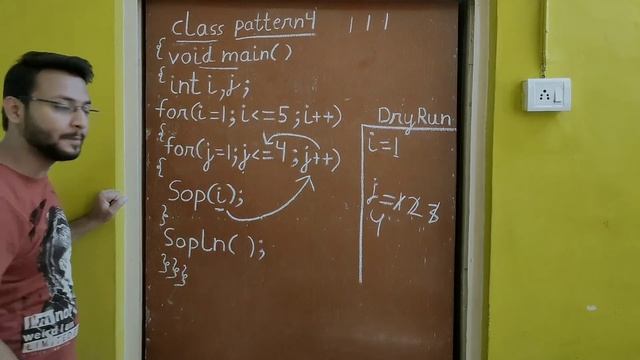 class pattern4
1 1 1
{ void main()
{ int i,j;
for(i=1; i<=5; i++)
{ for(j=1; j<=4; j++)
{
Sop(i);
}
Sopln( );
}}}
DryRun
i=1
j=1 2 3
4
I'm not
weird I am
LIMITED